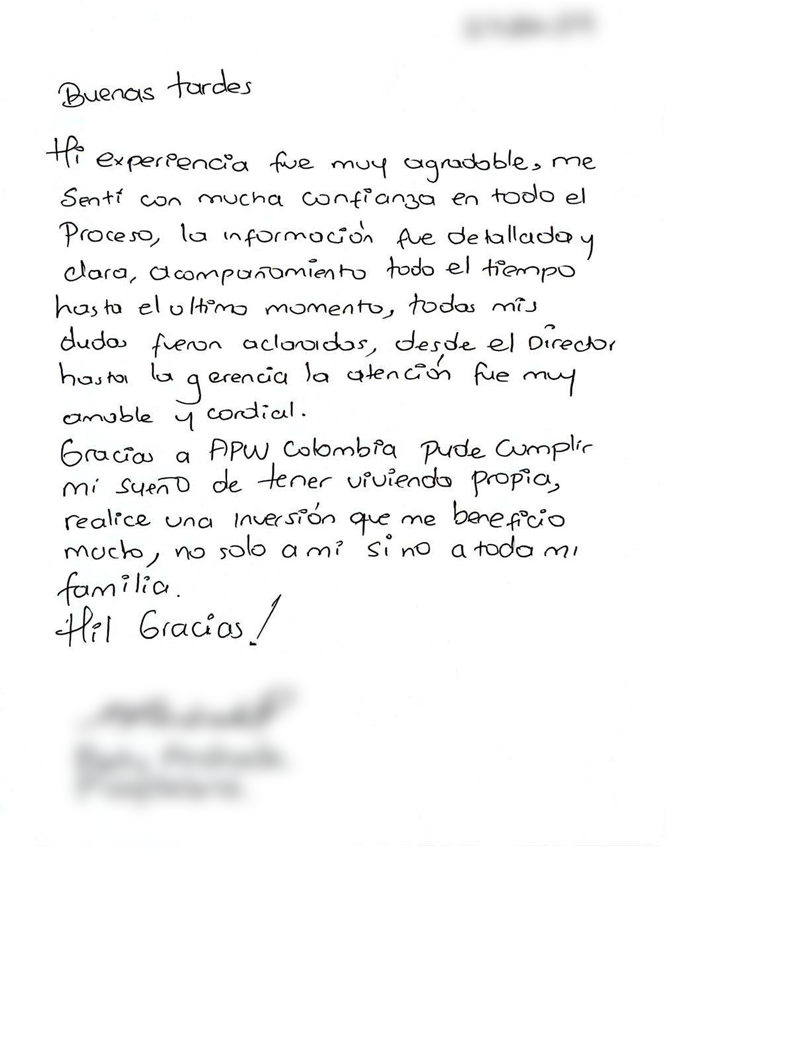 Buenas tardes
Mi experiencia fue muy agradable, me
Sentí con mucha confianza en todo el
Proceso, la información fue detallada y
clara, acompañamiento todo el tiempo
hasta el ultimo momento, todas mis
dudas fueron aclaradas, desde el Director
hasta la gerencia la atención fue muy
amable y cordial.
Gracias a APW Colombia pude cumplir
mi sueño de tener vivienda propia,
realice una inversión que me beneficio
mucho, no solo a mi si no a toda mi
familia.
Mil Gracias!